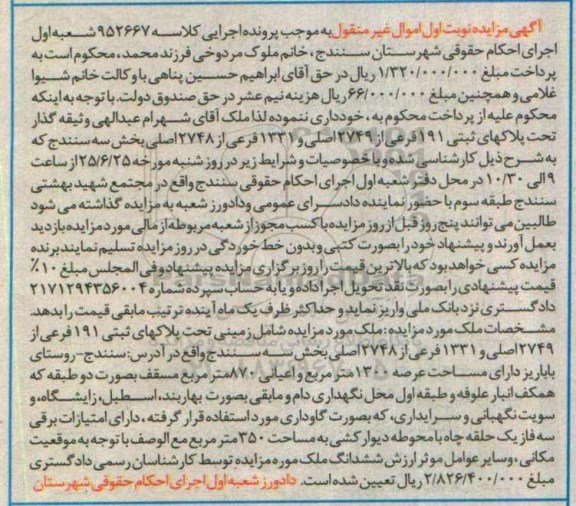 آگهی مزایده نوبت اول اموال غیر منقول به موجب پرونده اجرایی کلاسه ۹۵۲۶۶۷ شعبه اول
اجرای احکام حقوقی شهرستان سنندج، خانم ملوک مردوخی فرزند محمد، محکوم است به
پرداخت مبلغ ۱/۳۲۰/۰۰۰/۰۰۰ ریال در حق آقای ابراهیم حسین پناهی با وکالت خانم شیوا
غلامی و همچنین مبلغ ۶۶/۰۰۰/۰۰۰ ریال هزینه نیم عشر در حق صندوق دولت. با توجه به اینکه
محکوم علیه از پرداخت محکوم به، خودداری ننموده لذا ملک آقای شهرام عبدالهی وثیقه گذار
تحت پلاکهای ثبتی ۱۹۱ فرعی از ۲۷۴۹ اصلی و ۱۳۳۱ فرعی از ۲۷۴۸ اصلی بخش سه سنندج که
به شرح ذیل کارشناسی شده و با خصوصیات و شرایط زیر در روز شنبه مورخه ۲۵/۶/۲۵ از ساعت
۹ الی ۱۰/۳۰ در محل دفتر شعبه اول اجرای احکام حقوقی سنندج واقع در مجتمع شهید بهشتی
سنندج طبقه سوم با حضور نماینده دادسرای عمومی و دادورز شعبه به مزایده گذاشته می شود
طالبین می توانند پنج روز قبل از روز مزایده با کسب مجوز از شعبه مربوطه از مالی مورد مزایده بازدید
بعمل آورند و پیشنهاد خود را بصورت کتبی و بدون خط خوردگی در روز مزایده تسلیم نمایند برنده
مزایده کسی خواهد بود که بالاترین قیمت را روز برگزاری مزایده پیشنهاد و فی المجلس مبلغ ۱۰٪
قیمت پیشنهادی را بصورت نقد تحویل اجرا داده و یا به حساب سپرده شماره ۲۱۷۱۲۹۴۳۵۶۰۰۴
دادگستری نزد بانک ملی واریز نماید و حداکثر ظرف یک ماه آینده ترتیب مابقی قیمت را بدهد.
مشخصات ملک مورد مزایده: ملک مورد مزایده شامل زمینی تحت پلاکهای ثبتی ۱۹۱ فرعی از
۲۷۴۹ اصلی و ۱۳۳۱ فرعی از ۲۷۴۸ اصلی بخش سه سنندج واقع در آدرس: سنندج-روستای
باباریز دارای مساحت عرصه ۱۳۰۰ متر مربع و اعیانی ۸۷۰ متر مربع مسقف بصورت دو طبقه که
همکف انبار علوفه و طبقه اول محل نگهداری دام و مابقی بصورت بهاربند، اسطبل، زایشگاه، و
سویت نگهبانی و سرایداری، که بصورت گاوداری مورد استفاده قرار گرفته، دارای امتیازات برقی
سه فاز یک حلقه چاه با محوطه دیوارکشی به مساحت ۳۵۰ متر مربع مع الوصف با توجه به موقعیت
مکانی، و سایر عوامل موثر ارزش ششدانگ ملک مورد مزایده توسط کارشناسان رسمی دادگستری
مبلغ ۲/۸۲۶/۴۰۰/۰۰۰ ریال تعیین شده است. دادورز شعبه اول اجرای احکام حقوقی شهرستان